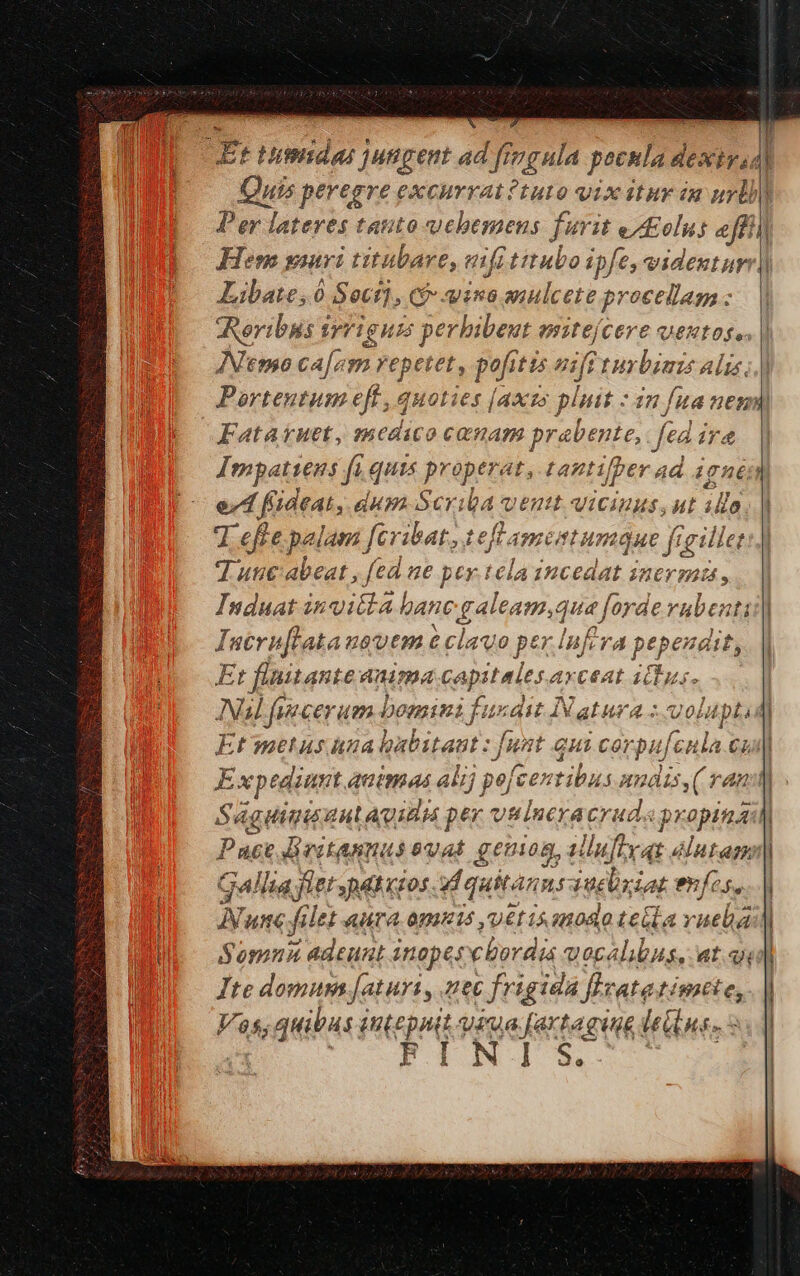 Et tumidas jungent ad ſingula pocula dextras
Quis peregre excurrat? tuto vix itur in urbi
Per lateres tanto vehemens furit Æolus
Hem muri titubare, niſi titubo ipſe, videntur
Libate, ô Socij, & vino mulcete procellam:
Roribus irriguis perhibent miteſcere ventos..
Nemo caſam repetet, poſitis niſi turbinis alis:
Portentum eſt, quoties ſaxis pluit: in ſua nemo
Fata ruet, medico cœnam præbente, ſed iræ
Impatiens ſi quis properat, tantiſper ad ignem
Aſſideat, dum Scriba venit vicinus, ut illo
Teſte palam ſcribat, teſtamentumque ſigillet:
Tunc abeat, ſed ne per tela incedat inermis,
Induat invicta hanc galeam, quæ ſorde rubenti
Incruſtata novem è clavo per luſtra pependit,
Et fluitante anima capitales arceat ictus.
Nil ſincerum homini fundit Natura: volupta
Et metus una habitant: ſunt qui corpuſcula
Expediunt animas alij poſcentibus undis,
Saguinis aut avidis per vulnera cruda propina
Pace Britannus ovat genioq, illuſtrat
Gallia flet, patrios quitannus inebriat enſes,
Nunc ſilet aura omnis, vetis modo tecta
Somnū adeunt inopes chordis vocalibus, at
Ite domum ſaturi, nec frigida ſtrata timete,
Vos, quibus intepuit viva ſartagine lectus.
FINIS.